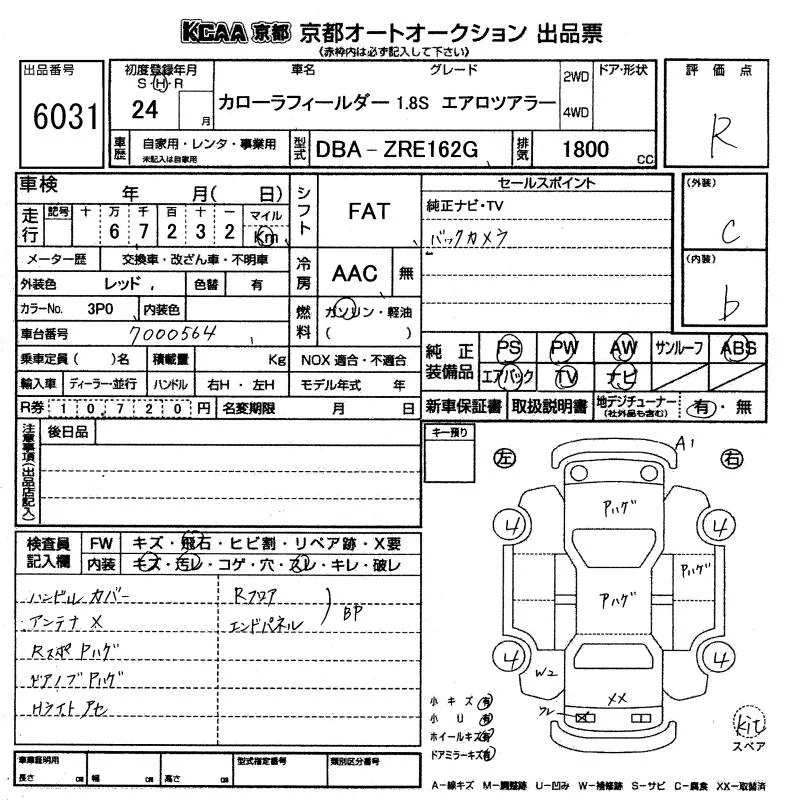 KCAA 京都 京都オートオークション 出品票
(赤枠内は必ず記入して下さい)
出品番号
6031
初度登録年月
S・H・R
24
月
車名
グレード
カローラフィールダー 1.8S エアロツアラー
2WD
4WD
ドア・形状
評価点
R
車歴
自家用・レンタ・事業用
未記入は自家用
型式
DBA-ZRE162G
排気
1800
CC
車検
年 月( 日)
シフト
FAT
セールスポイント
純正ナビ・TV
バックカメラ
(外装)
C
(内装)
b
走行
記号 十 万 千 百 十 一 マイル
6 7 2 3 2 Km
メーター歴
交換車・改ざん車・不明車
冷房
AAC
無
外装色
レッド
色替
有
カラーNo.
3P0
内装色
燃料
ガソリン・軽油
( )
車台番号
7000564
乗車定員( )名
積載量
Kg
NOX 適合・不適合
純正装備品
PS PW AW サンルーフ ABS
エアバック TV ナビ
輸入車
ディーラー・並行
ハンドル
右H・左H
モデル年式
年
R券
10,720
円
名変期限
月 日
新車保証書
取扱説明書
地デジチューナー
(社外品も含む)
有・無
注意事項(出品店記入)
後日品
キー預り
検査員記入欄
FW
キズ・飛石・ヒビ割・リペア跡・X要
内装
キズ・汚レ・コゲ・穴・スレ・キレ・破レ
ハンドル カバー
アンテナ X
Rスポ Pハゲ
ドアノブ Pハゲ
Hライト アセ
Rフロア
エンドパネル
BP
左
右
A1
Pハゲ
4
4
Pハゲ
Pハゲ
4
4
W2
XX
ワレ
小キズ 有
小 U 有
ホイールキズ 有
ドアミラーキズ 有
kit
スペア
車庫証明用
長さ cm
幅 cm
高さ cm
型式指定番号
類別区分番号
A-線キズ M-調整跡 U-凹み W-補修跡 S-サビ C-腐食 XX-取替済